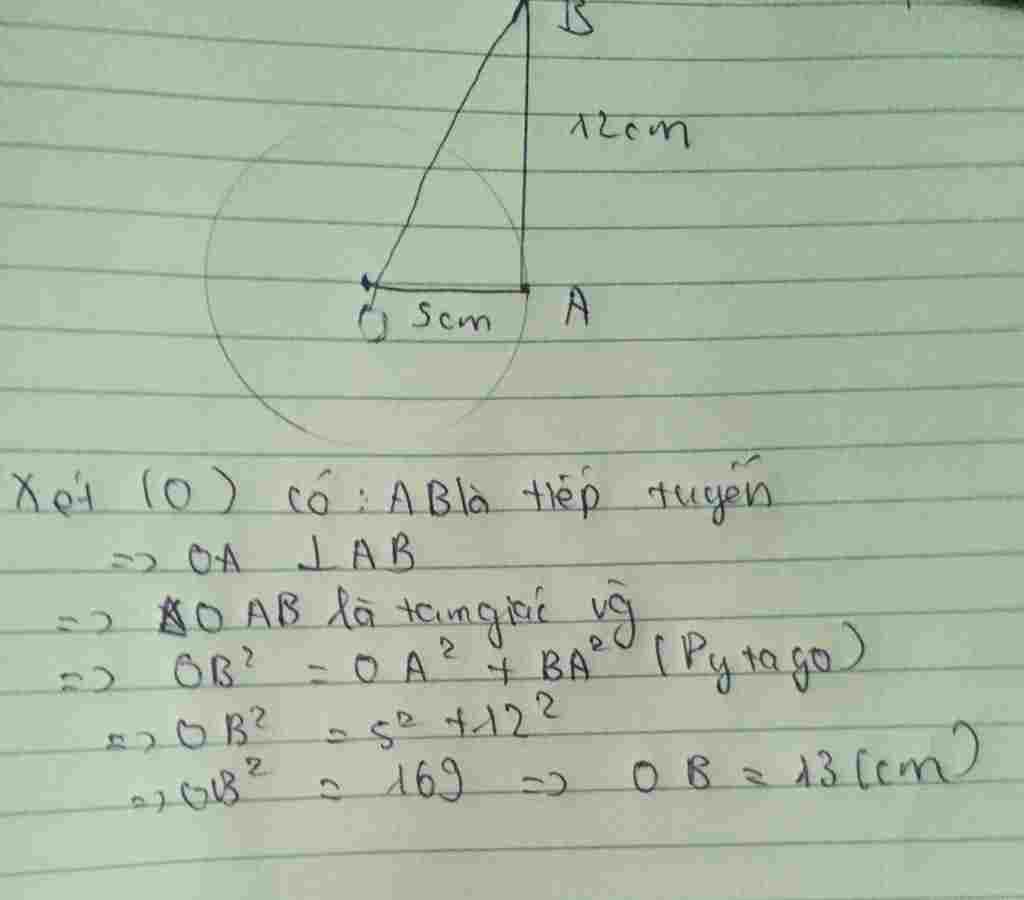 B
12cm
O 5cm A
Xét (O) có : AB là tiếp tuyến
=> OA ⊥ AB
=> ΔOAB là tam giác vg
=> OB² = OA² + BA² (Pytago)
=> OB² = 5² + 12²
=> OB² = 169 => OB = 13 (cm)